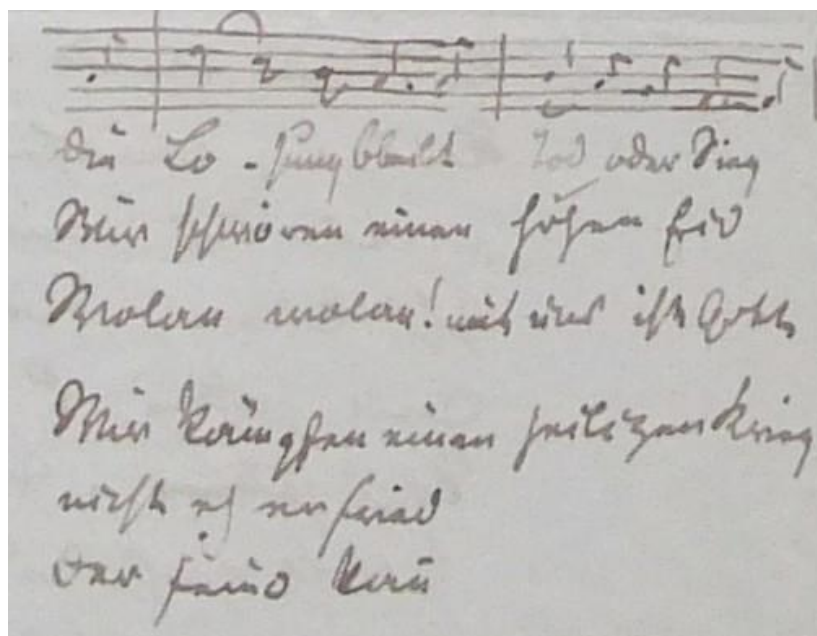 die Lo-sung bleibt Tod oder Sieg
Wir schwören einen hohen Eid
Wolan wolan! mit uns ist Gott
Wir kämpfen einen heiligen Krieg
nicht eh
Der Feind kan